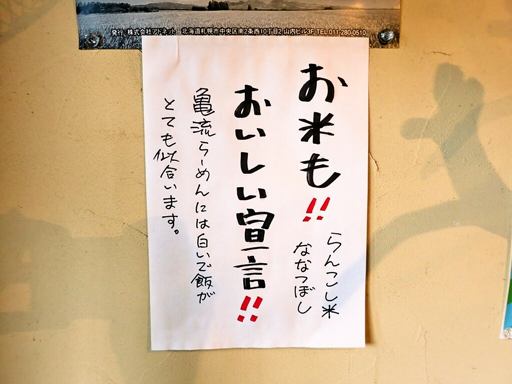 発行 株式会社アドネット 北海道札幌市中央区南2条西10丁目2 山内ビル3F TEL 011-280-0510
お米も!!
らんこし米
ななつぼし
おいしい宣言!!
亀流らーめんには白いご飯が
とても似合います。